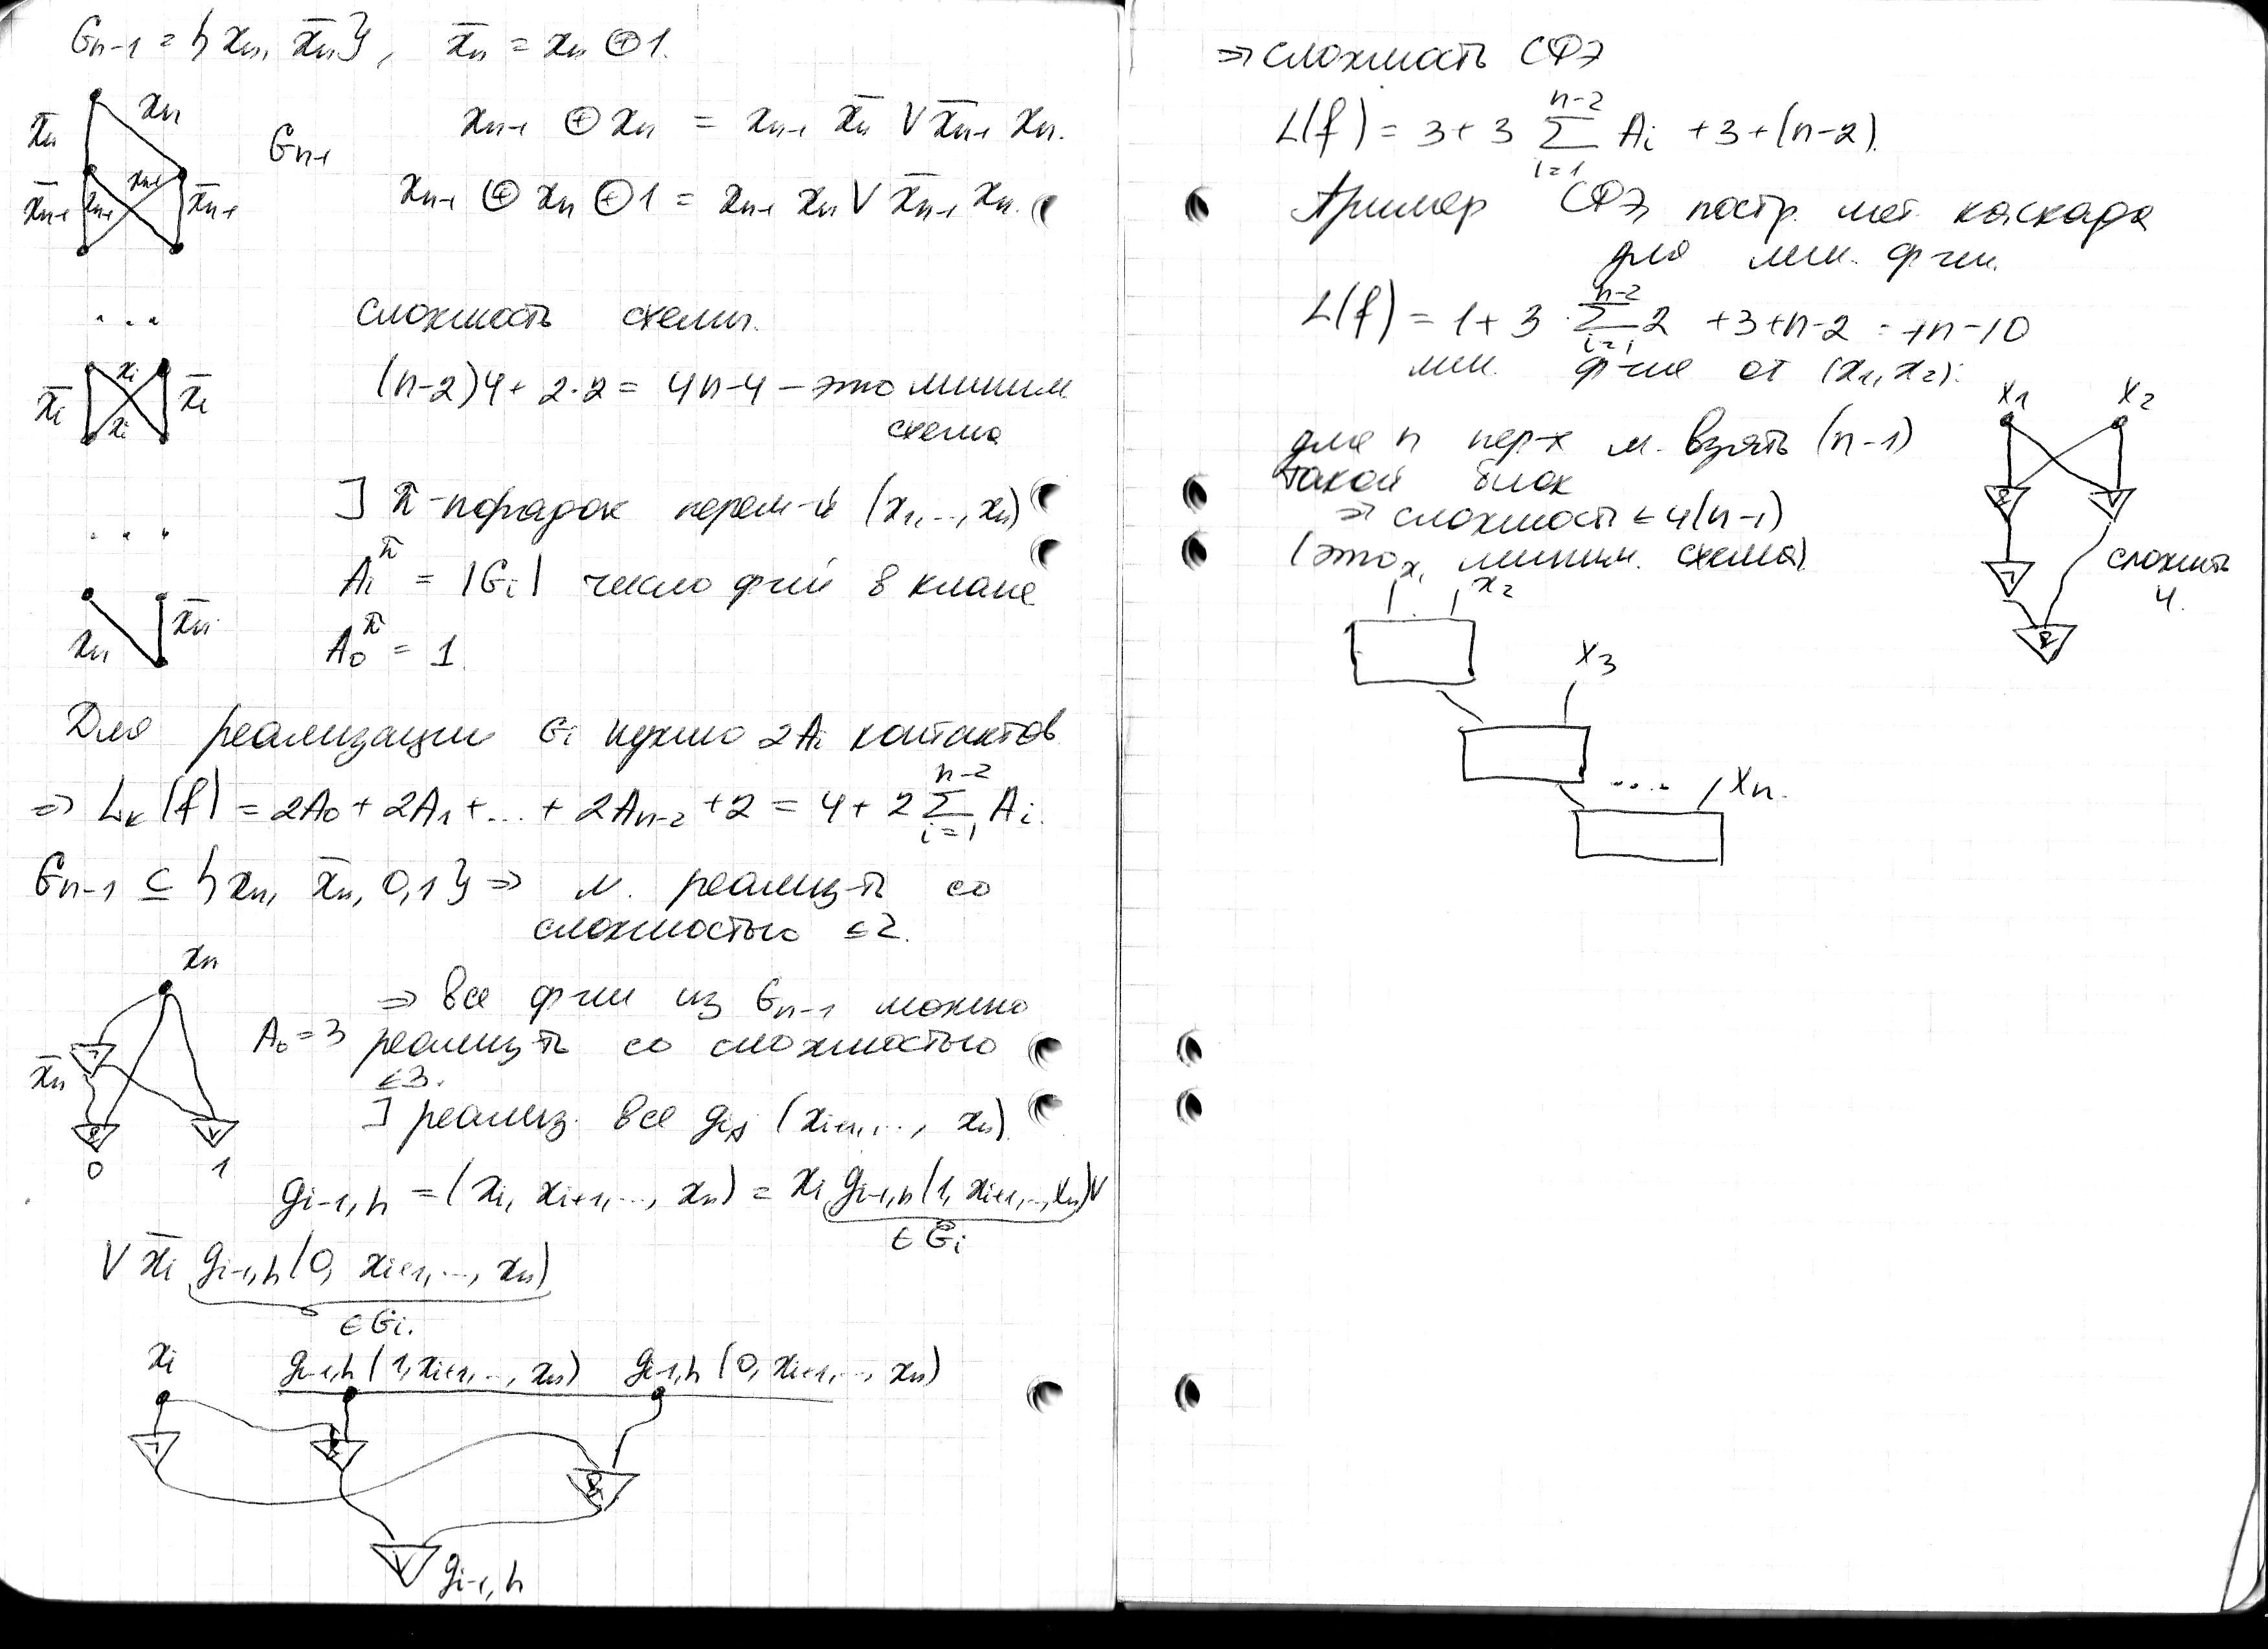 G_{n-1} = {x_n, x̄_n}, x̄_n = x_n ⊕ 1.
x̄_n x_n
G_{n-1} x_{n-1} ⊕ x_n = x_{n-1} x̄_n ∨ x̄_{n-1} x_n.
x̄_{n-1} x_{n-1} x_{n-1} x̄_{n-1}
x_{n-1} ⊕ x_n ⊕ 1 = x_{n-1} x_n ∨ x̄_{n-1} x_n.
... сложность схемы.
x̄_i x_i x_i x̄_i
(n-2)4 + 2·2 = 4n-4 – это миним.
схема
] π-порядок перем-й (x_1,..., x_n)
...
A_i^π = |G_i| число ф-ий в классе
x_n x̄_n
A_0^π = 1
Для реализации G_i нужно 2A_i контактов
⇒ L_k(f) = 2A_0 + 2A_1 + ... + 2A_{n-2} + 2 = 4 + 2 Σ_{i=1}^{n-2} A_i.
G_{n-1} ⊆ {x_n, x̄_n, 0, 1} ⇒ м. реализ-ть со
сложностью ≤2.
x_n
x̄_n
0 1
⇒ все ф-ии из G_{n-1} можно
A_0 = 3 реализ-ть со сложностью
≤3.
] реализ. все g_{is} (x_{i+1},..., x_n)
g_{i-1,h} = (x_i, x_{i+1},..., x_n) = x_i g_{i-1,h}(1, x_{i+1},..., x_n) ∨
∈ G_i
∨ x̄_i g_{i-1,h}(0, x_{i+1},..., x_n)
∈ G_i.
x_i g_{i-1,h}(1, x_{i+1},..., x_n) g_{i-1,h}(0, x_{i+1},..., x_n)
& &
∨ g_{i-1,h}
⇒ сложность СФЭ
L(f) = 3 + 3 Σ_{i=1}^{n-2} A_i + 3 + (n-2).
Пример СФЭ, постр. мет. каскада
для лин. ф-ии.
L(f) = 1 + 3 · Σ_{i=1}^{n-2} 2 + 3 + n-2 = 7n-10
лин. ф-ия от (x_1, x_2):
x_1 x_2
для n пер-х м. взять (n-1)
такой блок
⇒ сложность ≤ 4(n-1)
(это миним. схема)
сложность
4.
&
x_1 x_2
x_3
.... x_n.